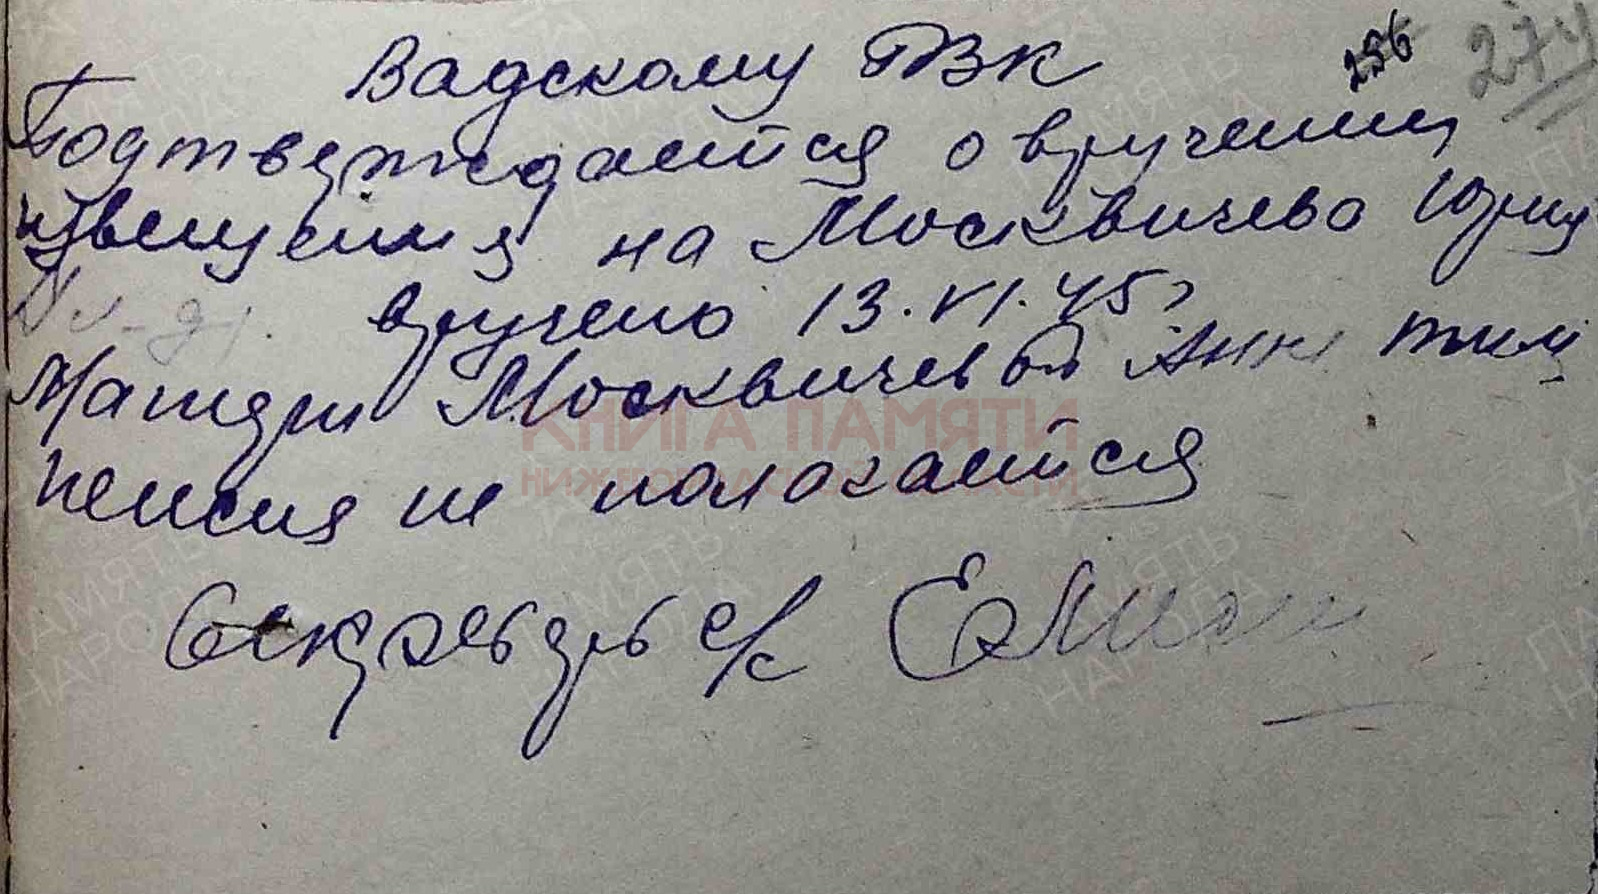 256 274
Вадскому РВК
Подтверждается о вручении
извещения на Москвичева Юрия
вручено 13.VI.45г
Матери Москвичевой Анне
пенсия не полагается
Секретарь с/с
КНИГА ПАМЯТИ
НИЖЕГОРОДСКОЙ ОБЛАСТИ